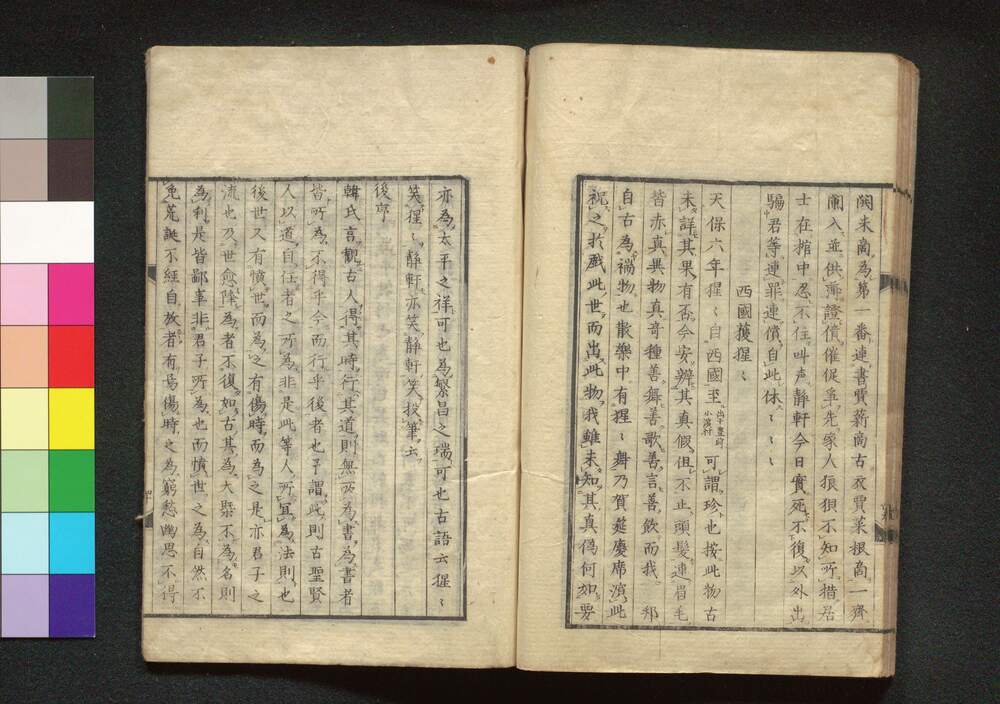 關米商為第一番連書賈薪商古衣賈菜根商一齊
闌入並供簿證償催促爭先家人狼狽不知所措居
士在棺中忍不住叫声静軒今日實死不復以外出
騙君等連罪連償自此休〻〻
西國獲猩〻
天保六年猩〻自西國至出于豊時小濱村可謂珍也按此物古
未詳其果有否今安辨其真假但不止頭髮連眉毛
皆赤真異物真奇種善舞善歌善言善飲而我邦
自古為禍物也散樂中有猩〻舞乃賀莚慶席演此
祝之於戲此世而出此物我雖未知其真偽何如要
亦為太平之祥可也為繁昌之瑞可也古語云猩〻
笑猩〻静軒亦笑静軒笑投筆云
後序
韓氏言觀古人得其時行其道則無所為書為書者
皆所為不得乎今而行乎後者也予謂此則古聖賢
人以道自任者之所為非是此等人所宜為法則也
後世又有憤世而為之有傷時而為之是亦君子之
流也及世愈降為者不復如古其為大槩不為名則
為利是皆鄙事非君子所為也而憤世之為自然不
免荒誕不經自放者有焉傷時之為窮愁幽思不得